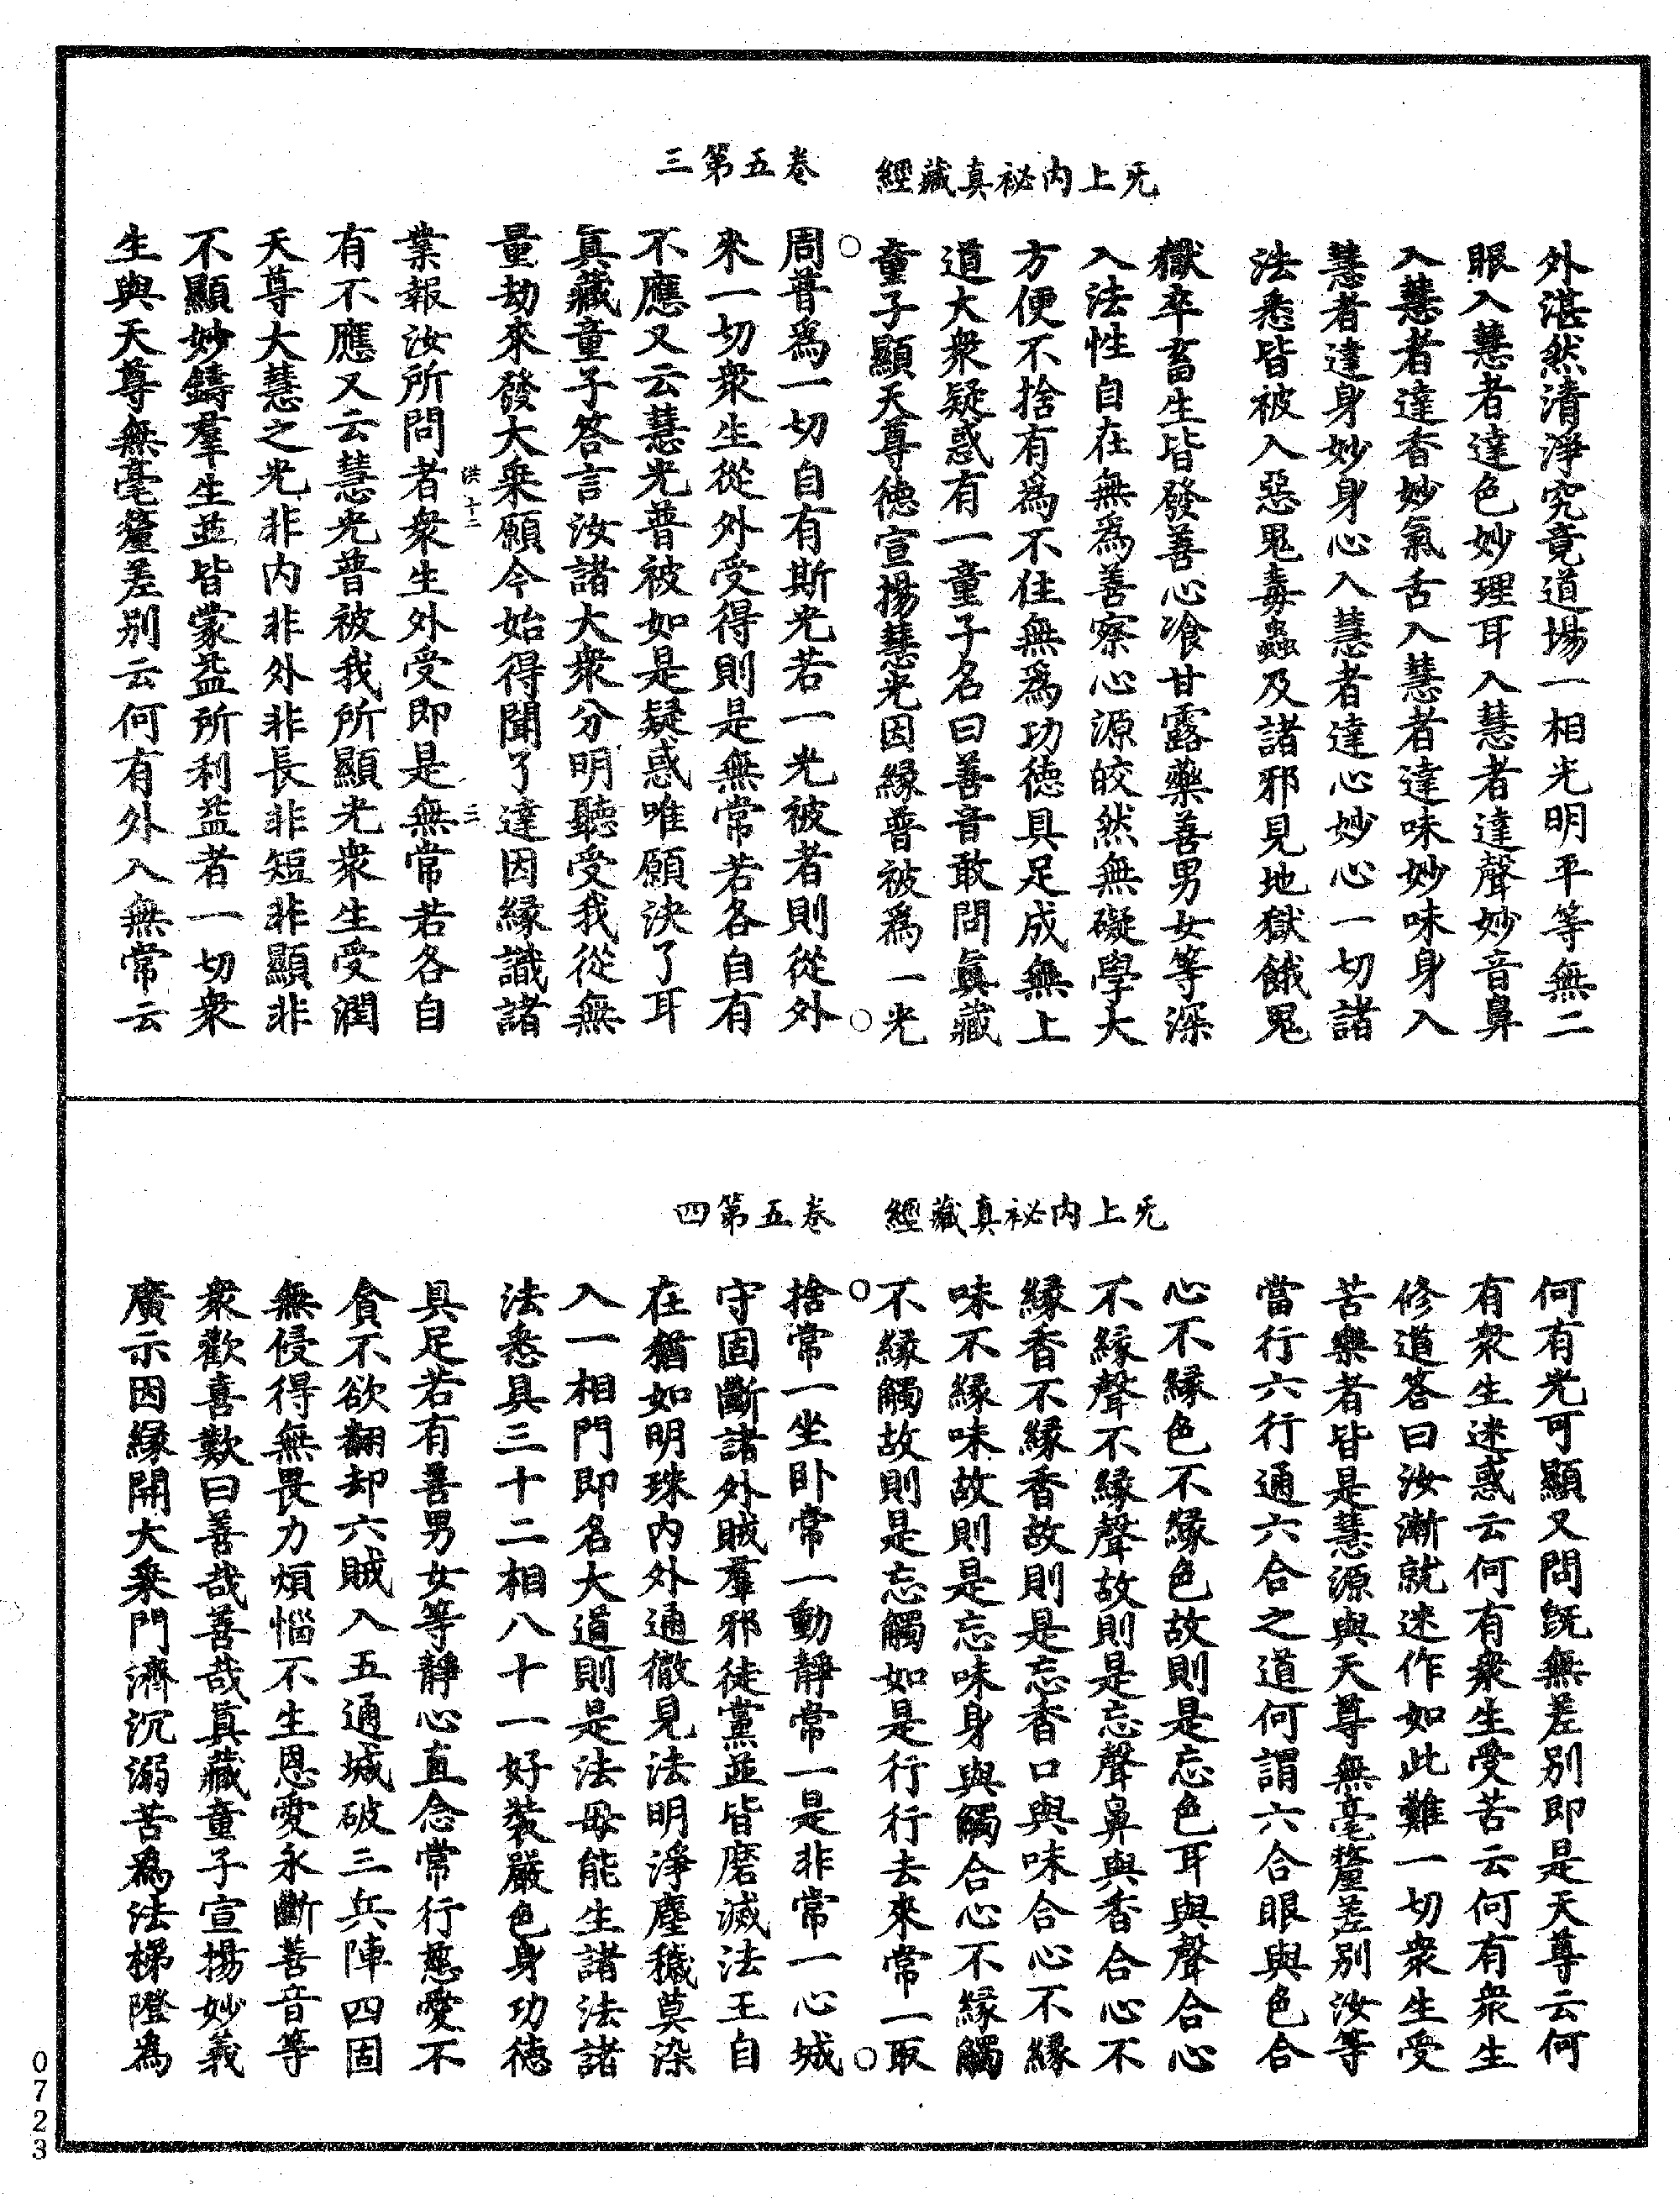 无上內祕真藏經　卷五第三
外湛然清淨究竟道場一相光明平等無二
眼入慧者達色妙理耳入慧者達聲妙音鼻
入慧者達香妙氣舌入慧者達味妙味身入
慧者達身妙身心入慧者達心妙心一切諸
法悉皆被入惡鬼毒蟲及諸邪見地獄餓鬼
獄卒畜生皆發善心飡甘露藥善男女等深
入法性自在無為善察心源皎然無礙學大
方便不捨有為不住無為功德具足成無上
道大衆疑惑有一童子名曰善音敢問眞藏
童子顯天尊德宣揚慧光因緣普被為一光
周普為一切自有斯光若一光被者則從外
來一切衆生從外受得則是無常若各自有
不應又云慧光普被如是疑惑唯願決了耳
眞藏童子答言汝諸大衆分明聽受我從無
量劫來發大乗願今始得聞了達因緣識諸
洪十二　三
業報汝所問者衆生外受即是無常若各自
有不應又云慧光普被我所顯光衆生受潤
天尊大慧之光非內非外非長非短非顯非
不顯妙鑄羣生並皆蒙益所利益者一切衆
生與天尊無毫釐差別云何有外入無常云
无上內祕真藏經　卷五第四
何有光可顯又問旣無差別即是天尊云何
有衆生迷惑云何有衆生受苦云何有衆生
修道答曰汝漸就迷作如此難一切衆生受
苦樂者皆是慧源與天尊無毫釐差別汝等
當行六行通六合之道何謂六合眼與色合
心不緣色不緣色故則是忘色耳與聲合心
不緣聲不緣聲故則是忘聲鼻與香合心不
緣香不緣香故則是忘香口與味合心不緣
味不緣味故則是忘味身與觸合心不緣觸
不緣觸故則是忘觸如是行行去來常一取
捨常一坐卧常一動靜常一是非常一心城
守固斷諸外賊羣邪徒黨並皆磨滅法王自
在猶如明珠內外通徹見法明淨塵穢莫染
入一相門即名大道則是法母能生諸法諸
法悉具三十二相八十一好裝嚴色身功德
具足若有善男女等靜心直念常行慈愛不
貪不欲翻却六賊入五通城破三兵陣四固
無侵得無畏力煩惱不生恩愛永斷善音等
衆歡喜歎曰善哉善哉眞藏童子宣揚妙義
廣示因緣開大乗門濟沉溺苦為法梯隥為
0723